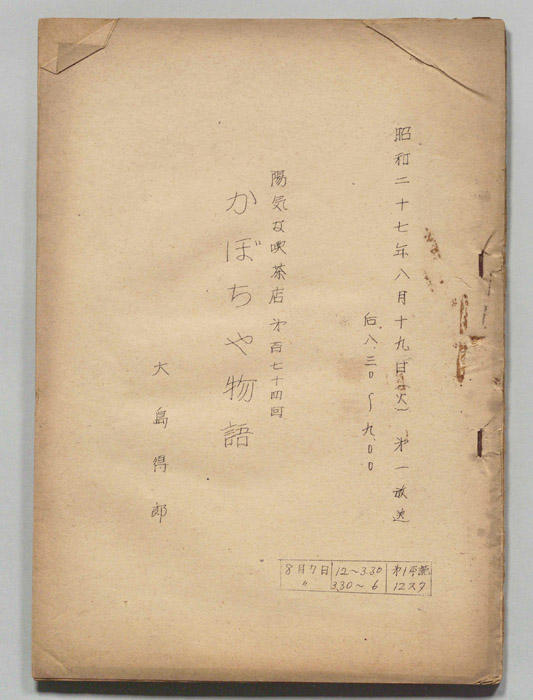 昭和二十七年八月十九日(火)第一放送
后八.三〇〜九.〇〇
陽気な喫茶店 第百七十四回
かぼちや物語
大島得郎
8月7日 12〜3.30 第1平読
〃 3.30〜6 12スタ